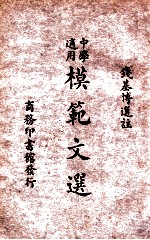 錢基博選註
中學適用
模範文選
商務印書館發行